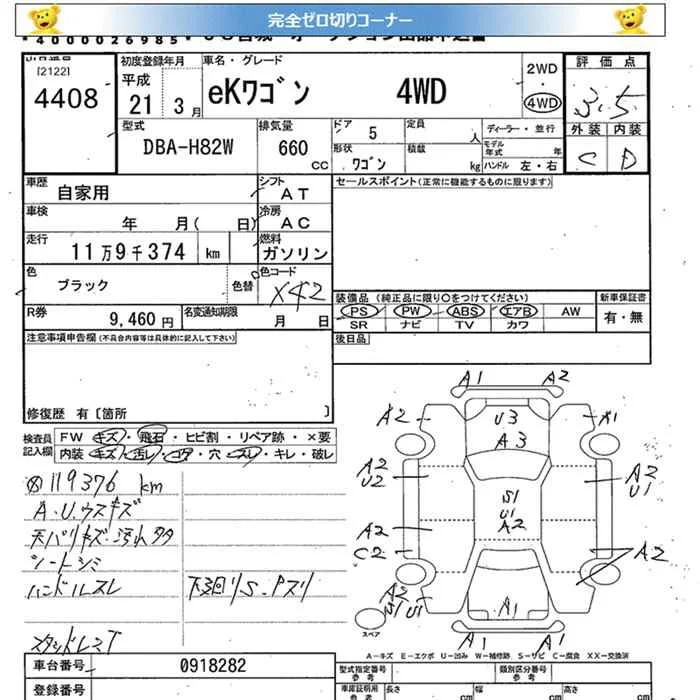 完全ゼロ切りコーナー
*4000026985*
[2122]
4408
初度登録年月
平成
21 3月
車名・グレード
eKワゴン 4WD
2WD
4WD
評価点
3.5
外装 内装
C D
型式
DBA-H82W
排気量
660 CC
ドア 5
定員 人
ディーラー・並行
形状 ワゴン
積載 kg
モデル年式 年
ハンドル 左・右
車歴
自家用
シフト
AT
セールスポイント(正常に機能するものに限ります)
車検
年 月( 日)
冷房
AC
走行
11万9千374 km
燃料
ガソリン
色
ブラック
色替
色コード
X42
装備品(純正品に限り○をつけてください)
新車保証書
PS PW ABS エアB AW
有・無
SR ナビ TV カワ
R券
9,460円
名変通知期限
月 日
後日品
注意事項申告欄(不具合内容等は具体的に記入して下さい)
修復歴 有〔箇所 〕
検査員記入欄
FW キズ・飛石・ヒビ割・リペア跡・×要
内装 キズ・汚レ・コゲ・穴・スレ・キレ・破レ
119376 km
A.U.ウスキズ
天バリキズ.汚れ
シートシミ
ハンドルスレ
下廻りS.Pスリ
A1 A2
A2 U3 A1
A3
A2 U2
A2 U1
S1
U1
A2
A2
C2
A2
A2
S1 U1
A1
A1 A1
スペア
A-キズ E-エクボ U-凹み W-補修跡 S-サビ C-腐食 XX-交換済
車台番号
0918282
登録番号
型式指定番号
参考
類別区分番号
参考
車庫証明用
参考
長さ cm
幅 cm
高さ cm